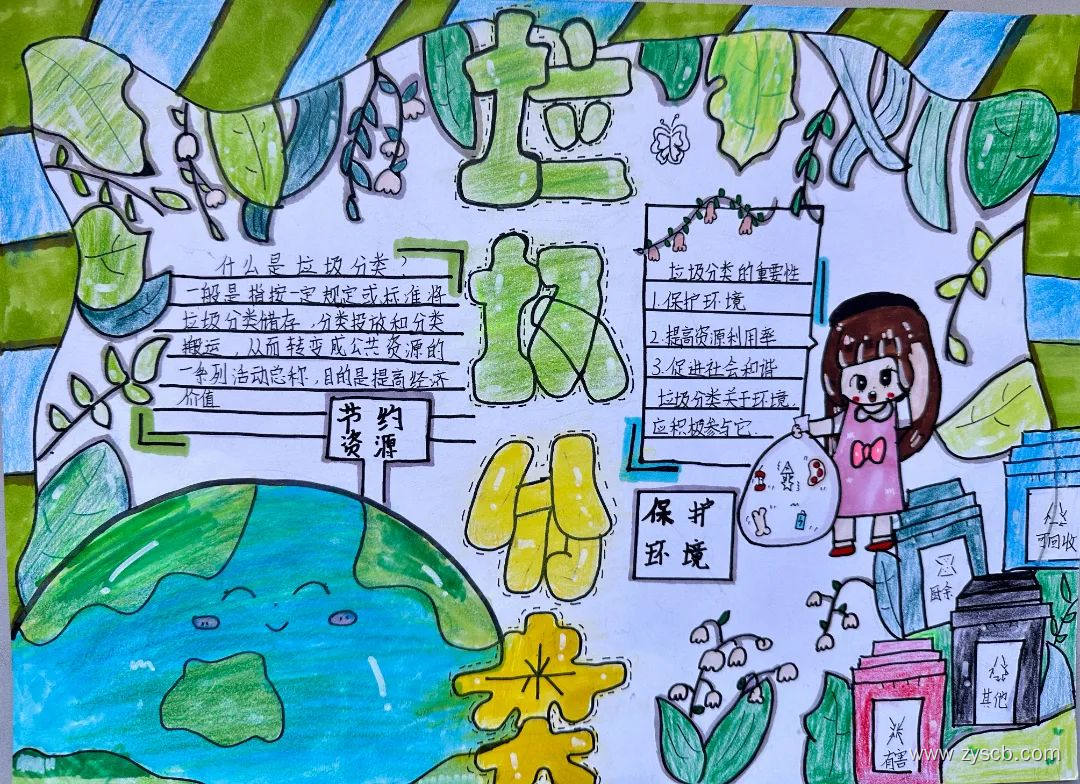 垃
圾
分
类
什么是垃圾分类?
一般是指按一定规定或标准将
垃圾分类储存,分类投放和分类
搬运,从而转变成公共资源的
一系列活动总称,目的是提高经济
价值
节约
资源
垃圾分类的重要性
1.保护环境
2.提高资源利用率
3.促进社会和谐
垃圾分类关于环境.
应积极参与它.
保护
环境
可回收
厨余
其他
有害
www.zyscb.com